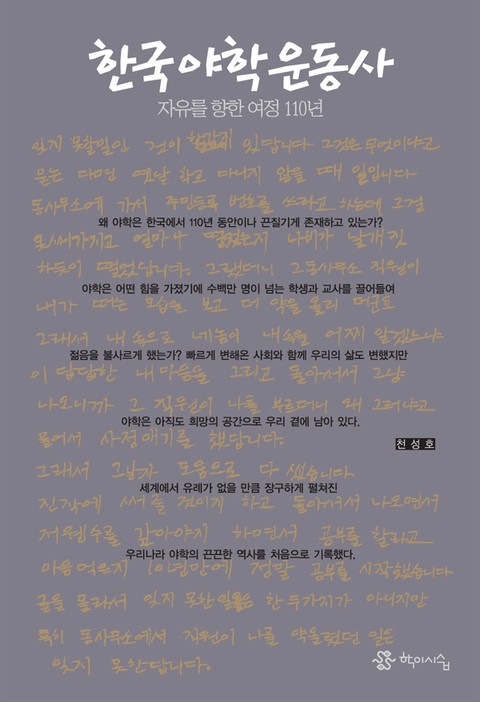 한국야학운동사
자유를 향한 여정 110년
잊지 못할일인 것이 한가지 있답니다 그것은 무엇이냐고
묻는 다면 옛날 학교 다니지 않을 때 일입니다
동사무소에 가서 주민등록 번호를 쓰라고 하는데 그걸
왜 야학은 한국에서 110년 동안이나 끈질기게 존재하고 있는가?
얼마나 떨었는지 나비가 날개짓
하듯이 떨었답니다. 그랬더니 그동사무소 직원이
야학은 어떤 힘을 가졌기에 수백만 명이 넘는 학생과 교사를 끌어들여
내가 떠는 모습을 보고 더 약을 올리
그래서 내 속으로 네놈이 내속을 어찌 알겠느냐
젊음을 불사르게 했는가? 빠르게 변해온 사회와 함께 우리의 삶도 변했지만
이 답답한 내마음을 그리고 돌아서서 그냥
나오니까 그 직원이 나를 부르더니 왜 그러냐고
야학은 아직도 희망의 공간으로 우리 곁에 남아 있다.
물어서 사정얘기를 했답니다.
천성호
그래서 그남자 도움으로 다 썼습니다
세계에서 유례가 없을 만큼 장구하게 펼쳐진
진작에 써서 줄 것이지 하고 돌아서서 나오면서
저 웬수를 갚아야지 하면서 공부를 할라고
우리나라 야학의 끈끈한 역사를 처음으로 기록했다.
마음먹은지 10년만에 정말 공부를 시작했습니다
글을 몰라서 잊지 못한 일들은 한 두가지가 아니지만
특히 동사무소에서 직원이 나를 약올렸던 일은
잊지 못한답니다.
학이시습